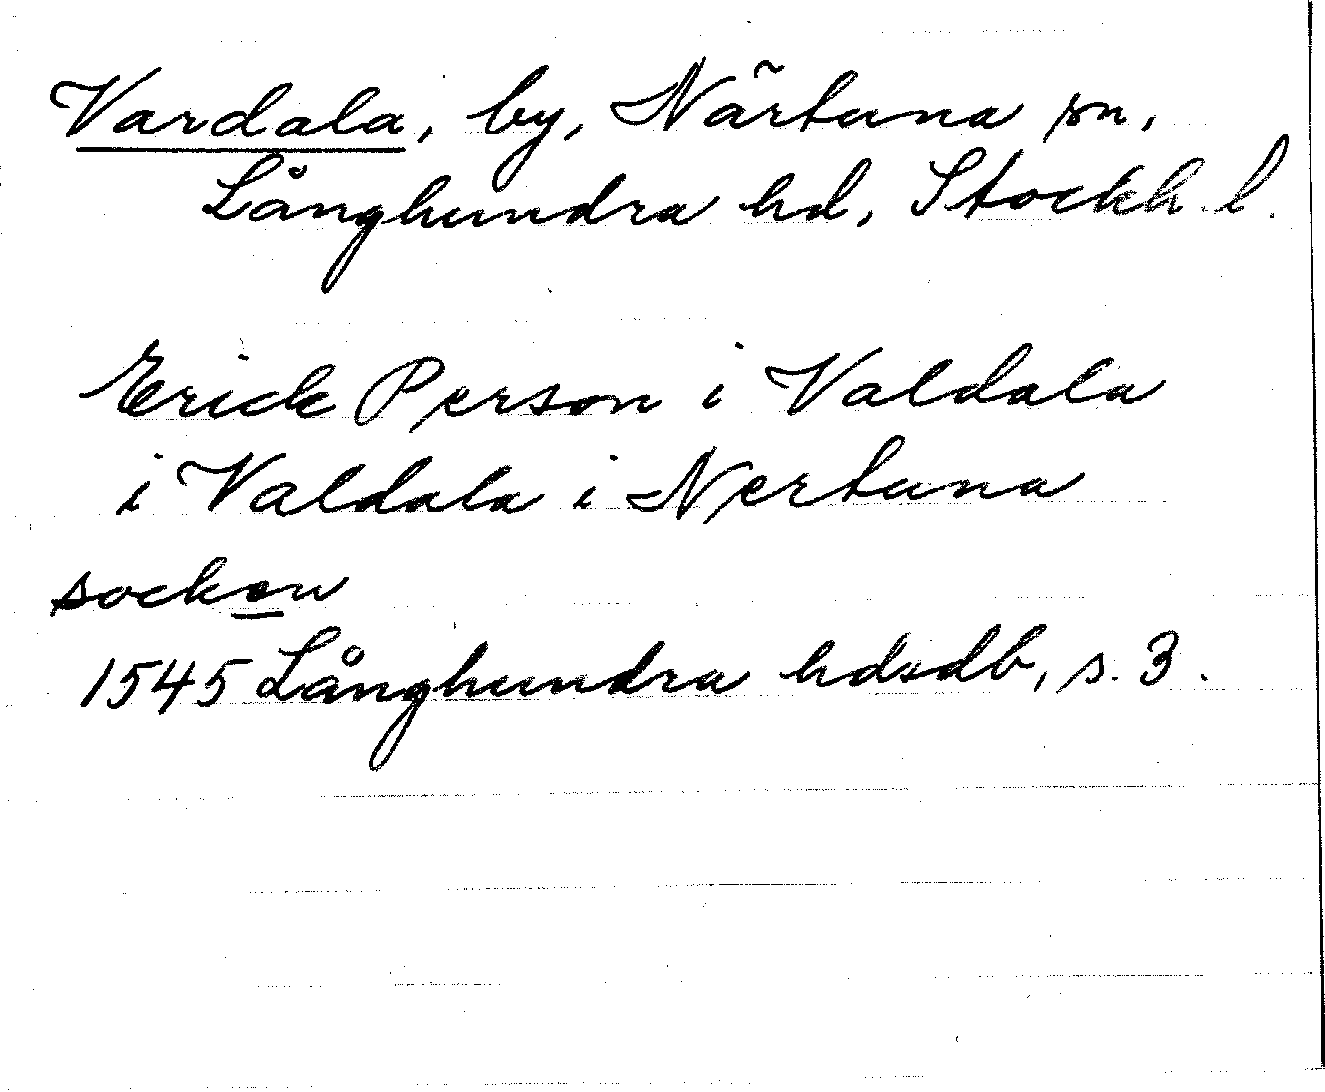 Vardala, by, Närtuna sn,
Långhundra hd, Stockh. l.
Erick Person i Valdala
i Valdala i Nertuna
socken
1545 Långhundra hdsdb, s. 3.